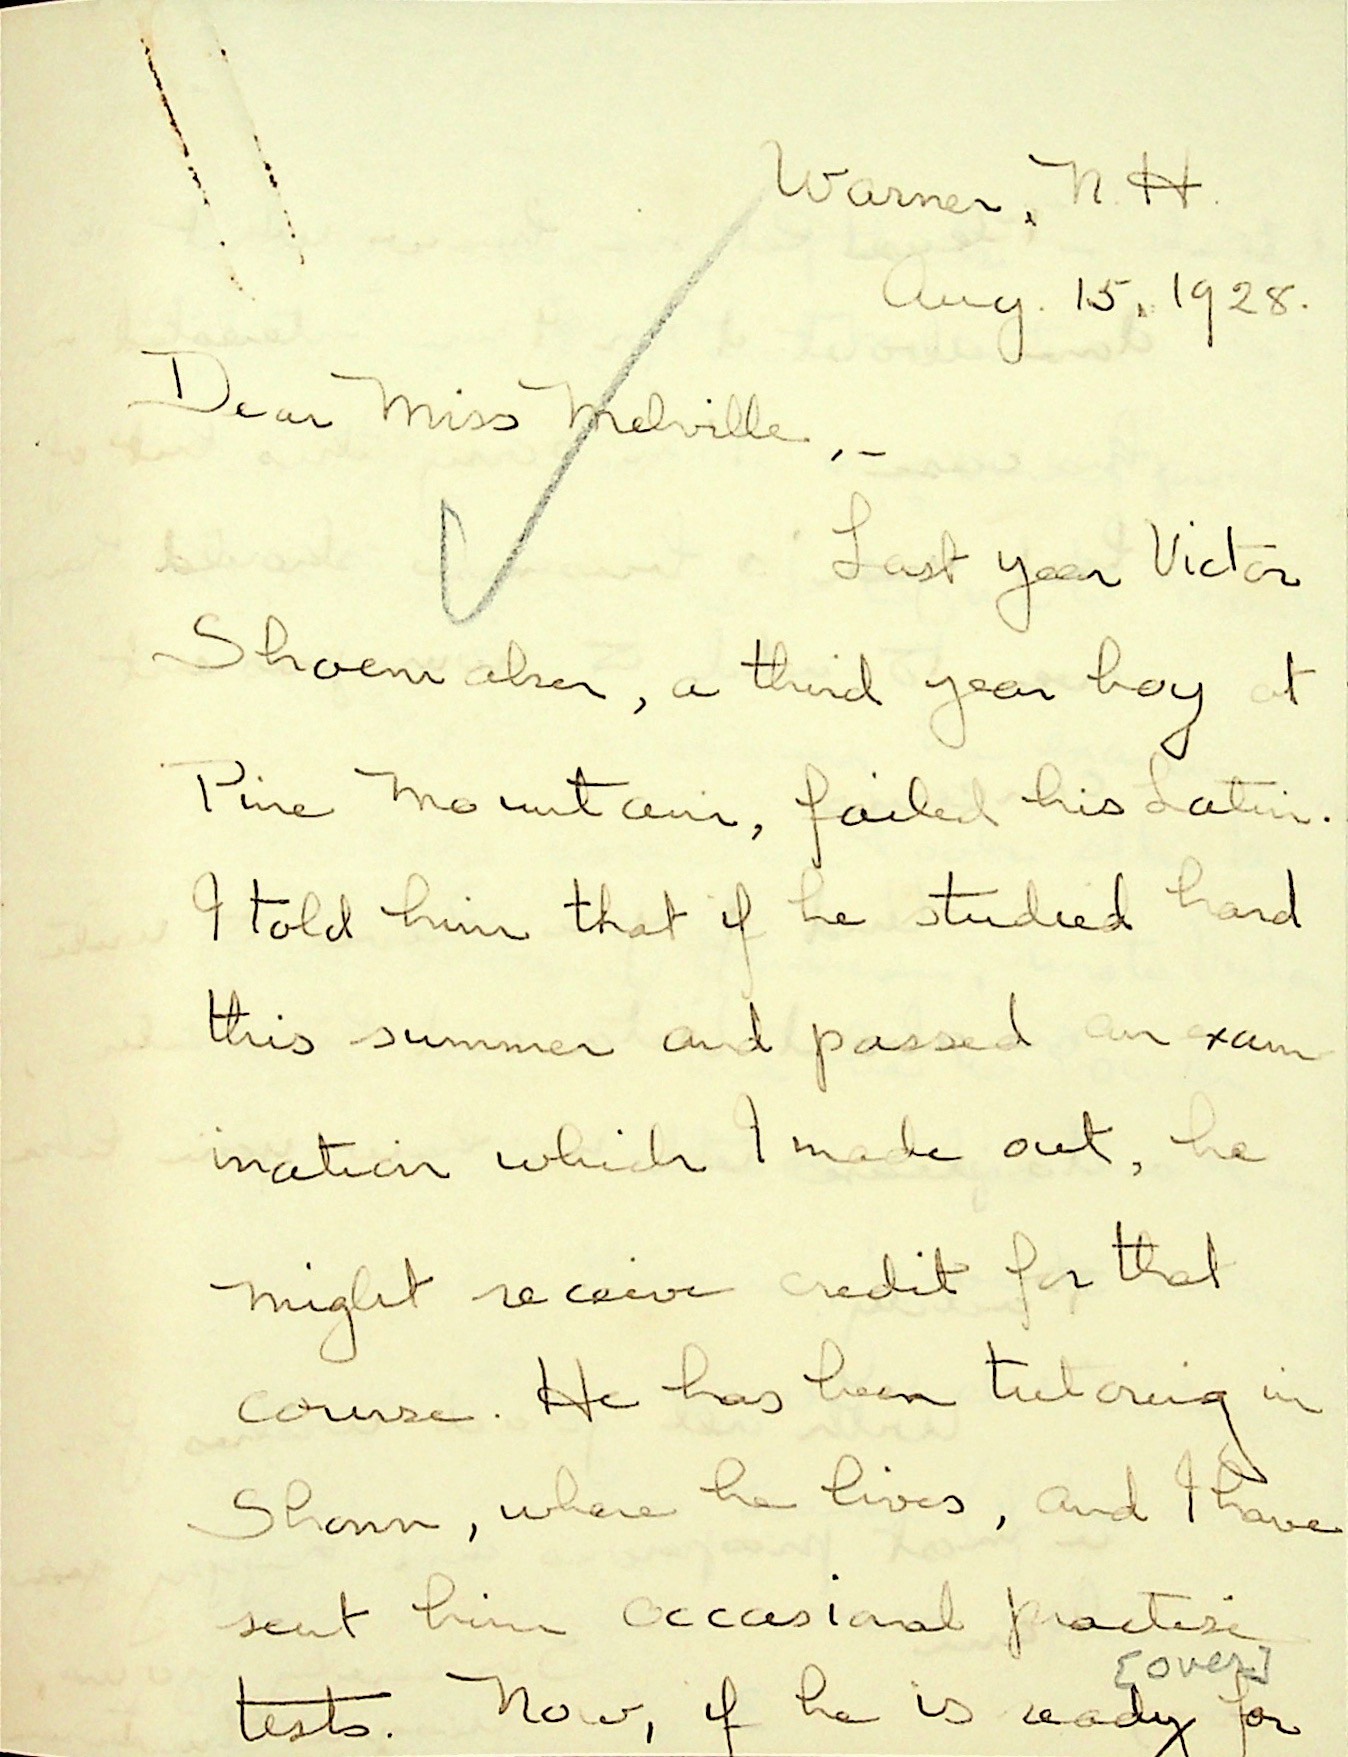 Warner, N.H.
Aug. 15, 1928.
Dear Miss Melville,-
Last year Victor
Shoemaker, a third year boy at
Pine Mountain, failed his Latin.
I told him that if he studied hard
this summer and passed an exam
ination which I made out, he
might receive credit for that
course. He has been tutoring in
Shonn, where he lives, and I have
sent him occasional practise
[over]
tests. Now, if he is ready for